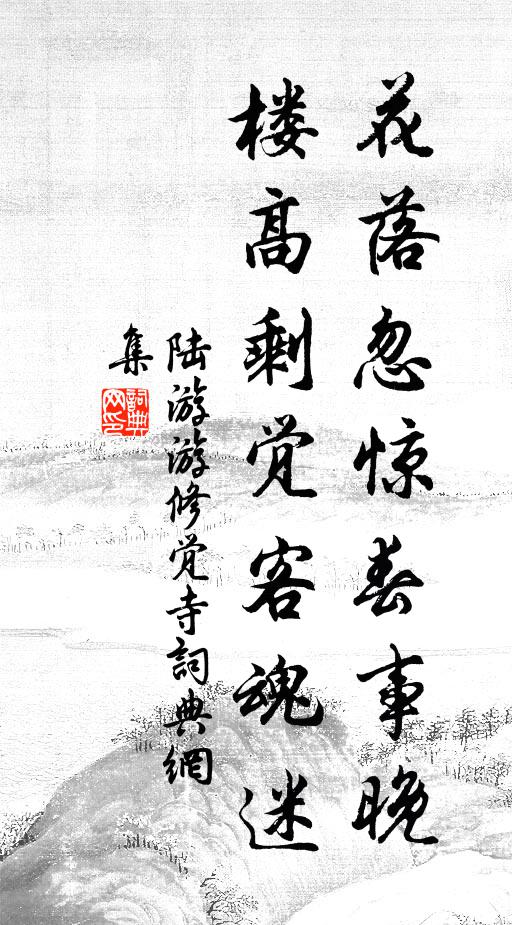 花落忽惊春事晚
楼高剩觉客魂迷
陆游游修觉寺詞典網
集
詞典
网印